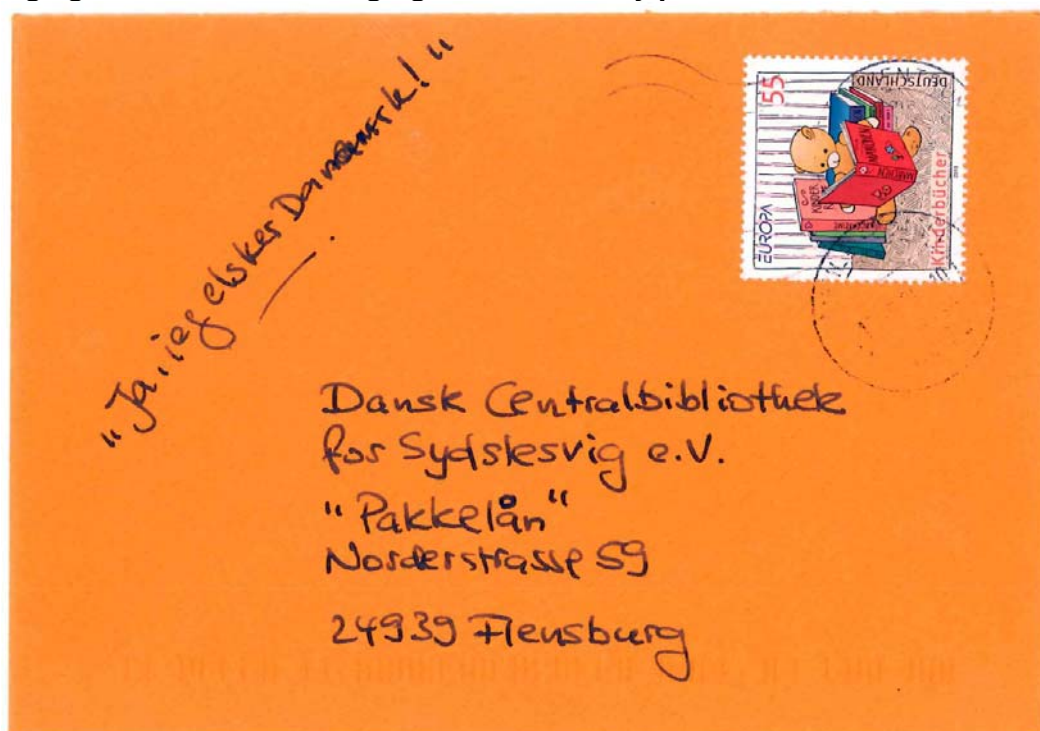 "Ja, jeg elsker Danmark!"
EUROPA
55
DEUTSCHLAND
Kinderbücher
MÄRCHEN
MÄRCHEN
Dansk Centralbibliothek
for Sydslesvig e.V.
"Pakkelån"
Norderstrasse 59
24939 Flensburg